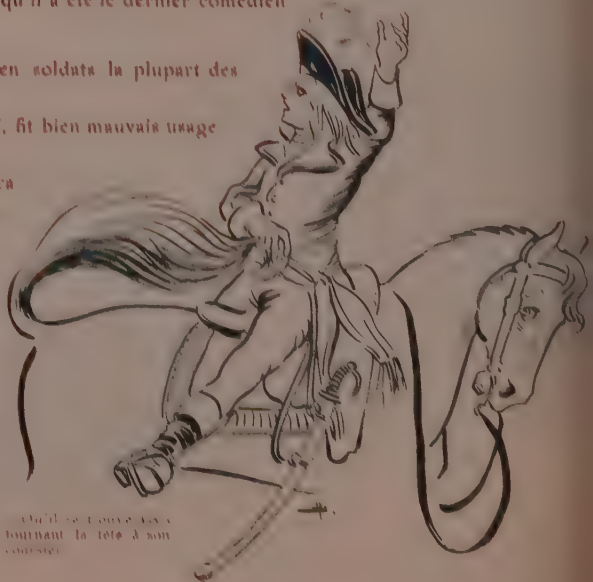 qu'il a été le dernier comédien
en soldats la plupart des
, fit bien mauvais usage
ra
Qu'il se trouve
tournant la tête à son
coursier